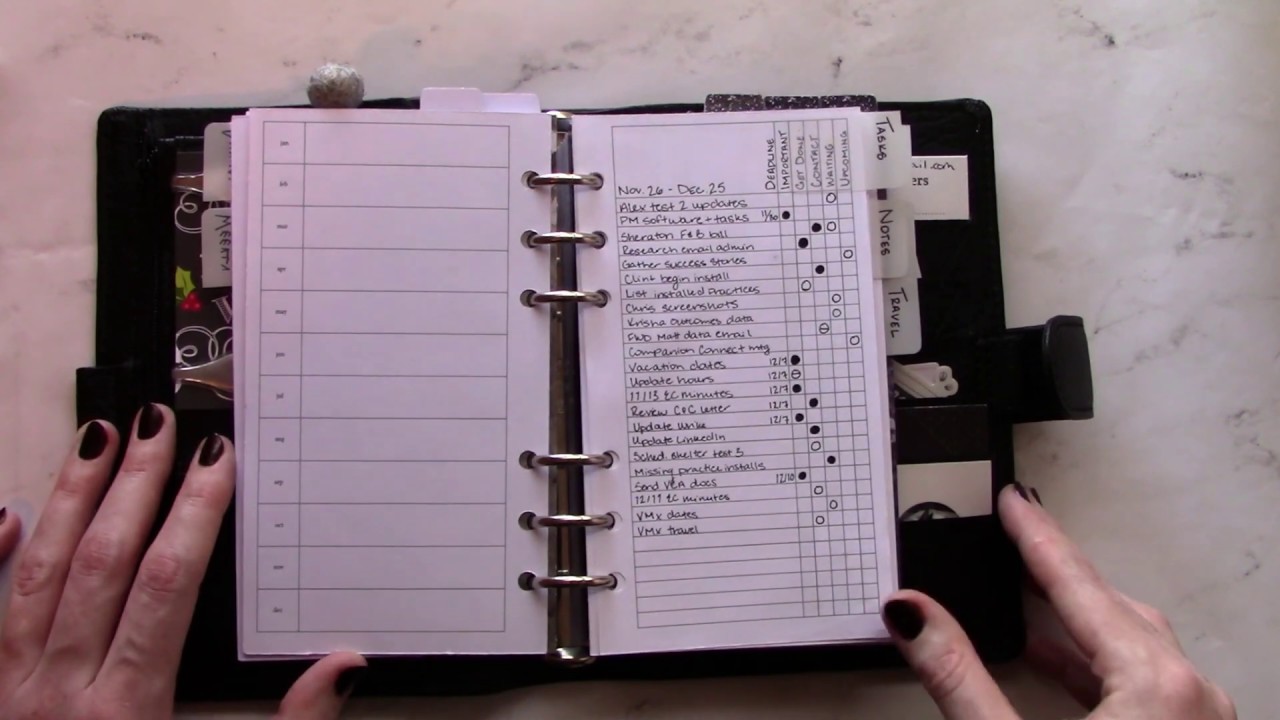 jan
feb
mar
apr
may
jun
jul
aug
sep
oct
nov
dec
DEADLINE
IMPORTANT
GET DONE
CONTACT
WAITING
UPCOMING
Nov. 26 - Dec. 25
Alex test 2 updates
PM software + tasks 11/30
Sheraton F&B bill
Research email admin
Gather success stories
Clint begin install
List installed practices
Chris screenshots
Krisha outcomes data
FWD Matt data email
Companion Connect mtg
Vacation dates 12/7
Update hours 12/7
11/13 EC minutes 12/7
Review C&C letter 12/7
Update Wrike 12/7
Update LinkedIn
Sched. shelter test 5
Missing practice installs
Send VCA docs 12/10
12/11 EC minutes
VMX dates
VMX travel
TASKS
NOTES
TRAVEL
ail.com
ers